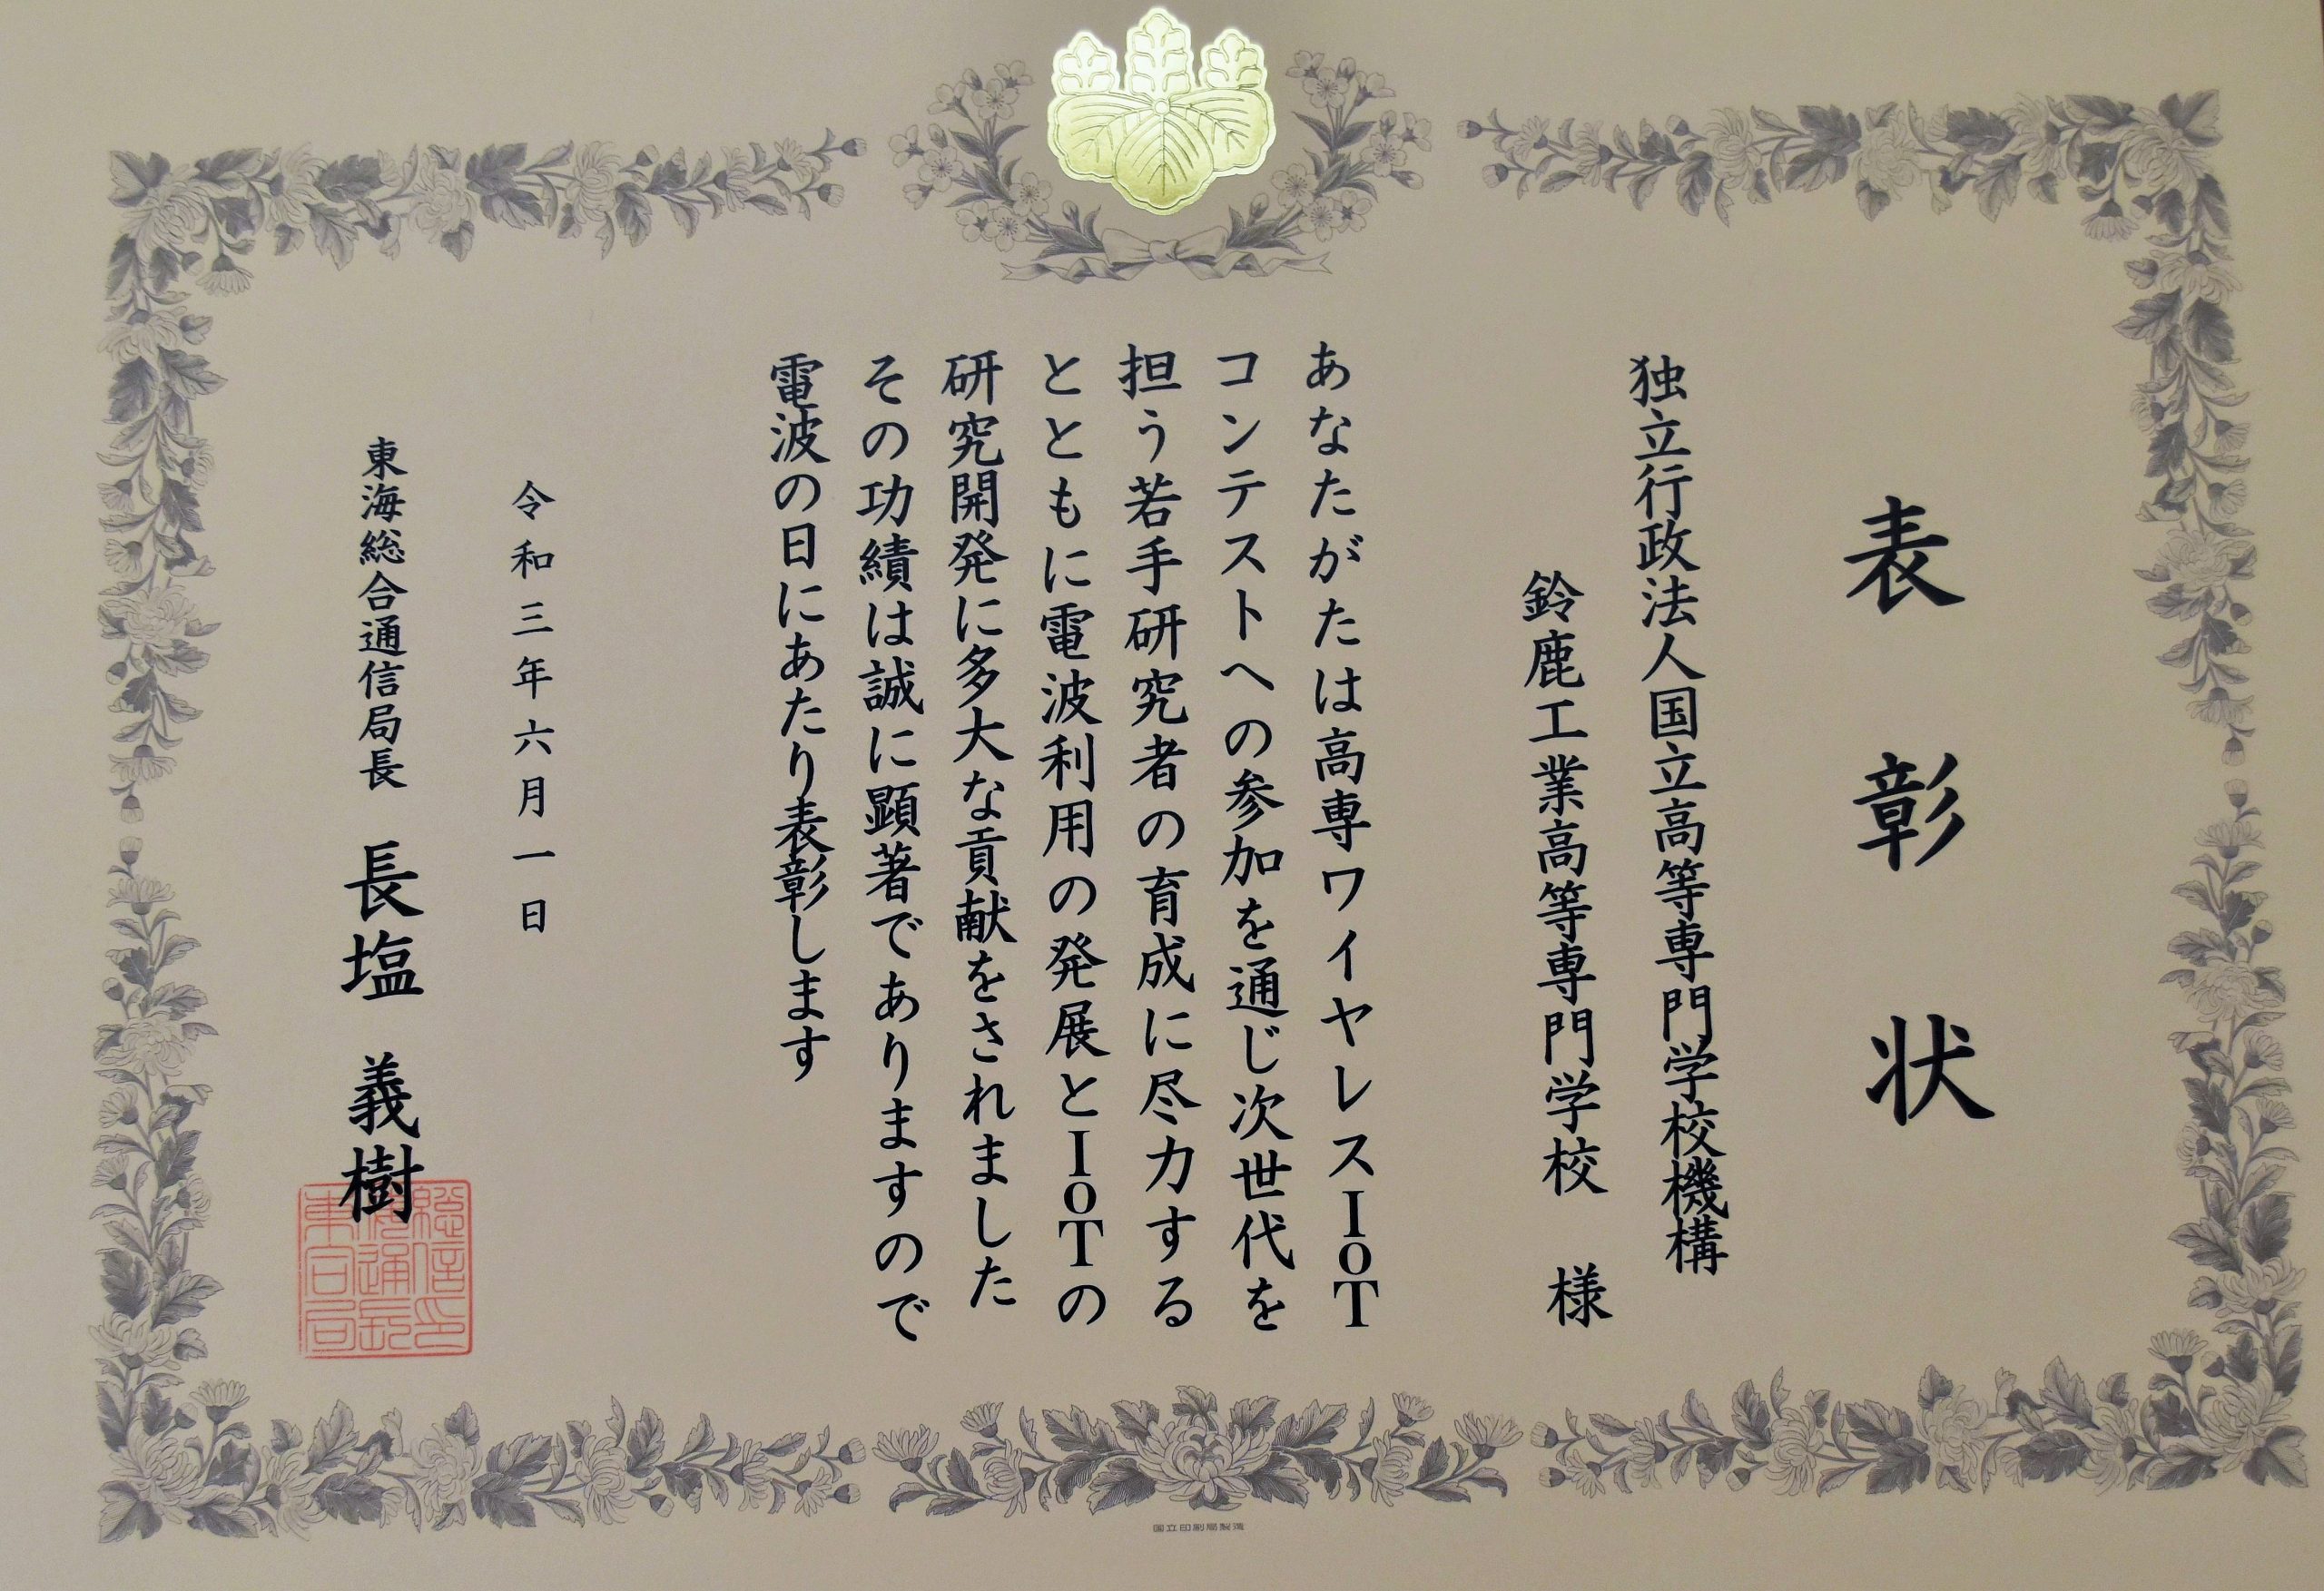 表彰状
独立行政法人国立高等専門学校機構
鈴鹿工業高等専門学校 様
あなたがたは高専ワイヤレスIoT
コンテストへの参加を通じ次世代を
担う若手研究者の育成に尽力する
とともに電波利用の発展とIoTの
研究開発に多大な貢献をされました
その功績は誠に顕著でありますので
電波の日にあたり表彰します
令和三年六月一日
東海総合通信局長 長塩 義樹
国立印刷局製造